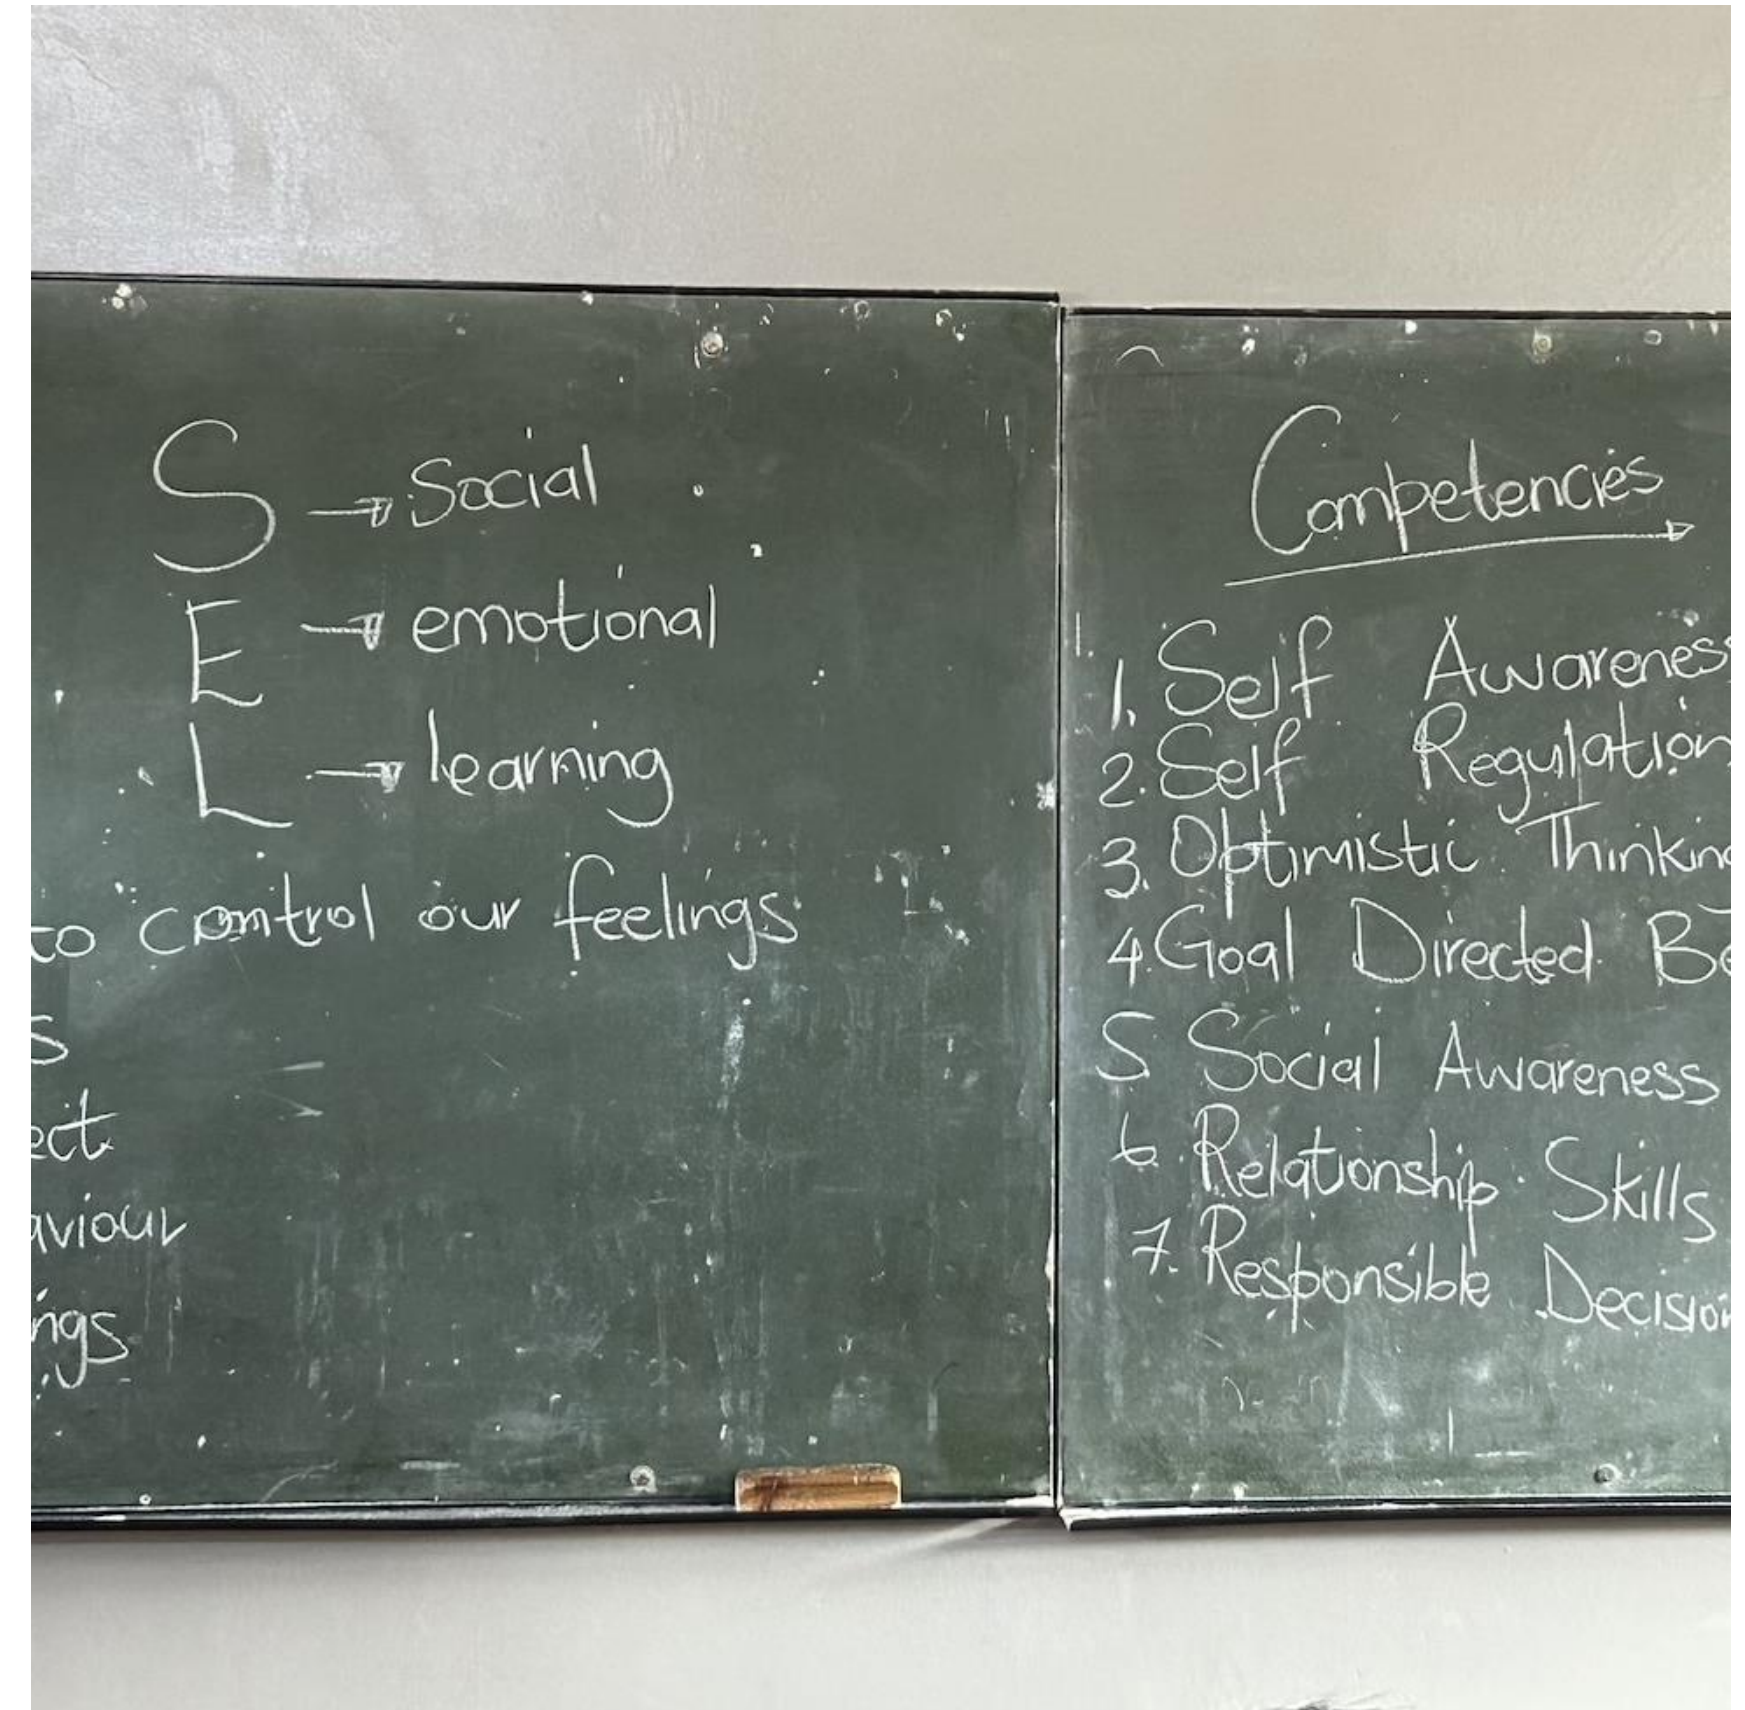 S → Social
E → emotional
L → learning
to control our feelings
s
ect
aviour
ngs
Competencies
1.
1. Self Awareness
2. Self Regulation
3. Optimistic Thinking
4. Goal Directed Be
5. Social Awareness
6. Relationship Skills
7. Responsible Decision